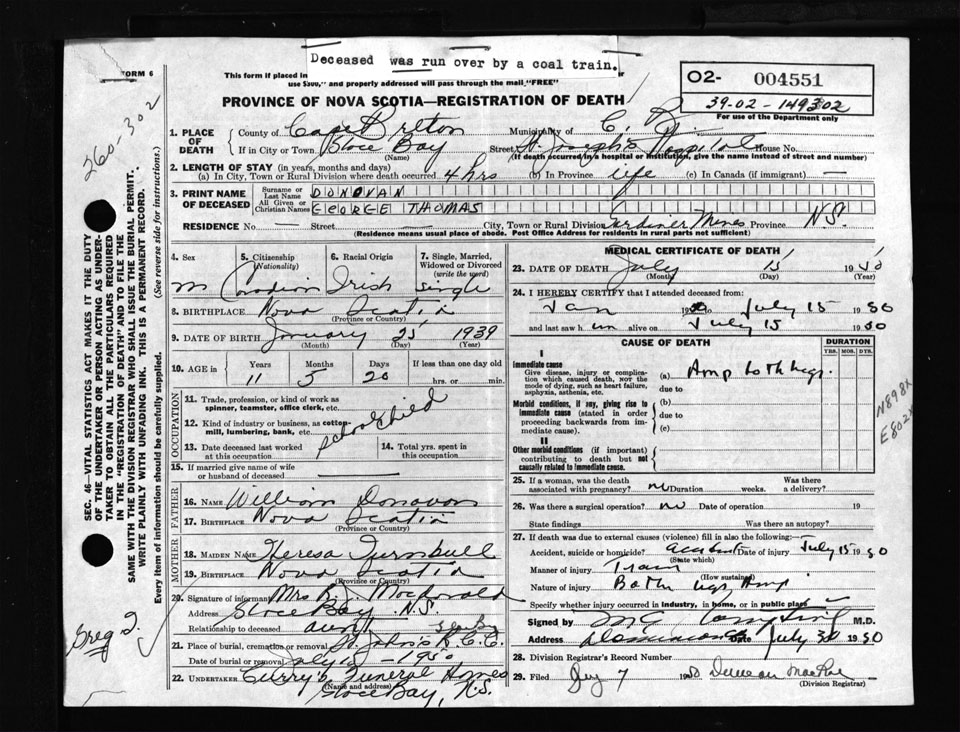 Deceased was run over by a coal train.
FORM 6
This form if placed in
use $300," and properly addressed will pass through the mail "FREE"
02- 004551
39-02-149302
For use of the Department only
PROVINCE OF NOVA SCOTIA—REGISTRATION OF DEATH
360-302
1. PLACE OF DEATH
County of Cape Breton Municipality of C. B.
If in City or Town Glace Bay (Name) Street St Joseph's Hospital House No.
(If death occurred in a hospital or institution, give the name instead of street and number)
2. LENGTH OF STAY (in years, months and days)
(a) In City, Town or Rural Division where death occurred 4 hrs (b) In Province life (c) In Canada (if immigrant) —
3. PRINT NAME OF DECEASED
Surname or Last Name DONOVAN
All Given or Christian Names GEORGE THOMAS
RESIDENCE No — Street — City, Town or Rural Division Gardiner Mines Province N.S.
(Residence means usual place of abode. Post Office Address for residents in rural parts not sufficient)
4. Sex 5. Citizenship (Nationality) 6. Racial Origin 7. Single, Married, Widowed or Divorced (write the word)
m Canadian Irish Single
8. BIRTHPLACE Nova Scotia
(Province or Country)
9. DATE OF BIRTH January 25 1939
(Month) (Day) (Year)
10. AGE in Years Months Days If less than one day old
11 5 20 hrs. or min.
OCCUPATION
11. Trade, profession, or kind of work as spinner, teamster, office clerk, etc.
school child
12. Kind of industry or business, as cotton-mill, lumbering, bank, etc.
13. Date deceased last worked at this occupation
14. Total yrs. spent in this occupation
15. If married give name of wife or husband of deceased —
FATHER
16. NAME William Donovan
17. BIRTHPLACE Nova Scotia
(Province or Country)
MOTHER
18. MAIDEN NAME Theresa Turnbull
19. BIRTHPLACE Nova Scotia
(Province or Country)
20. Signature of informant Mrs R. J. MacDonald
Address Glace Bay N.S.
Relationship to deceased aunt
21. Place of burial, cremation or removal St John's R.C.C.
Date of burial or removal July 18 - 1950
22. UNDERTAKER Curry's Funeral Homes
(Name and address)
Glace Bay, N.S.
MEDICAL CERTIFICATE OF DEATH
23. DATE OF DEATH July 15 1950
(Month) (Day) (Year)
24. I HEREBY CERTIFY that I attended deceased from:
Jan 19 to July 15 1950
and last saw him alive on July 15 1950
CAUSE OF DEATH DURATION
YRS. MOS. DYS.
I
Immediate cause
Give disease, injury or complication which caused death, not the mode of dying, such as heart failure, asphyxia, asthenia, etc.
(a) Amp both legs.
due to
Morbid conditions, if any, giving rise to immediate cause (stated in order proceeding backwards from immediate cause).
(b)
due to
(c)
II
Other morbid conditions (if important) contributing to death but not causally related to immediate cause.
N898X
E802X
25. If a woman, was the death associated with pregnancy? no Duration weeks. Was there a delivery?
26. Was there a surgical operation? no Date of operation 19
State findings Was there an autopsy?
27. If death was due to external causes (violence) fill in also the following:
Accident, suicide or homicide? accident Date of injury July 15 1950
(State which)
Manner of injury Train
(How sustained)
Nature of injury Both legs Amp
Specify whether injury occurred in industry, in home, or in public place
Signed by M.D.
Address Dominion Date July 30 1950
28. Division Registrar's Record Number
29. Filed Aug 7 1950 Duncan MacRae
(Division Registrar)
SEC. 46—VITAL STATISTICS ACT MAKES IT THE DUTY
OF THE UNDERTAKER OR PERSON ACTING AS UNDER-
TAKER TO OBTAIN ALL THE PARTICULARS REQUIRED
IN THE "REGISTRATION OF DEATH" AND TO FILE THE
SAME WITH THE DIVISION REGISTRAR WHO SHALL ISSUE THE BURIAL PERMIT.
WRITE PLAINLY WITH UNFADING INK. THIS IS A PERMANENT RECORD.
Every item of information should be carefully supplied. (See reverse side for instructions.)